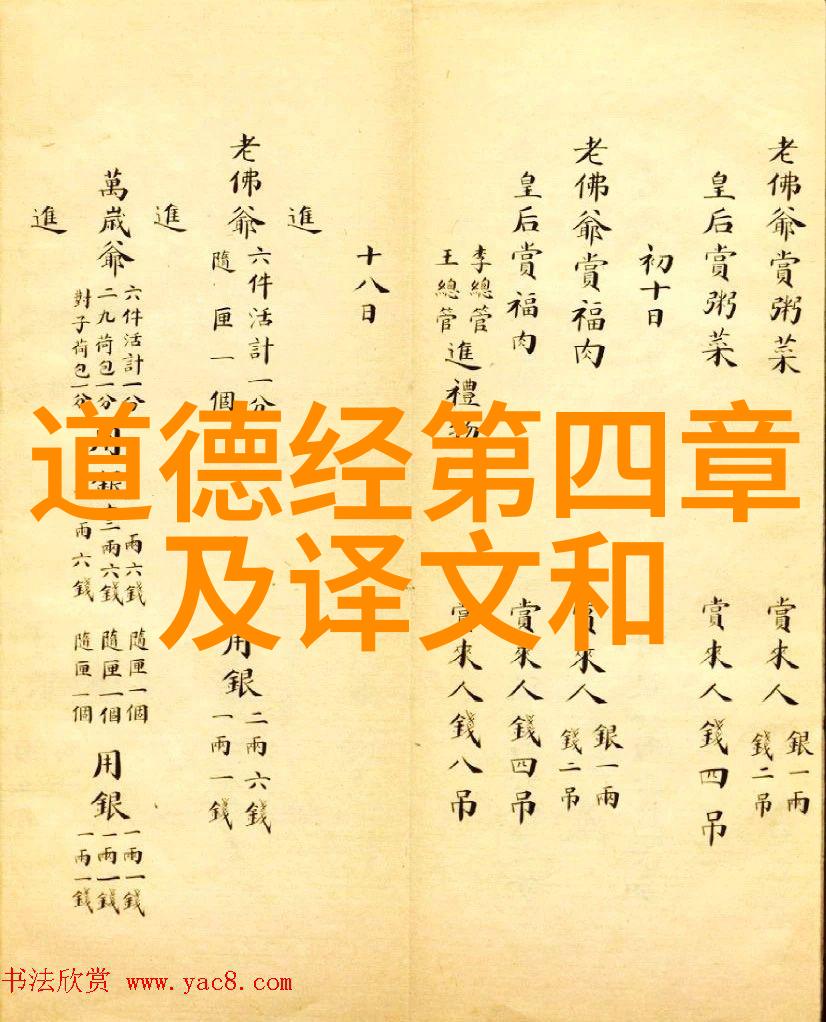 老佛爺賞粥菜 賞來人 銀一兩 錢二吊
皇后賞粥菜 賞來人錢四吊
初十日
老佛爺賞福肉 賞來人 銀一兩 錢二吊
皇后賞福肉 賞來人錢四吊
李總管 王總管 進禮 賞來人錢八吊
十八日
進
老佛爺 六件活計一分 隨匣一個 用銀 二兩六錢 一兩一錢
進
萬歲爺 六件活計一分 二九荷包一分 對子荷包一分 用 兩六錢 二兩六錢 兩六錢 隨匣一個 隨匣一個 隨匣一個 用銀 一兩一錢 一兩一錢 一兩一錢
進
道德经第四章
及译文和
书法欣赏 www.yac8.com